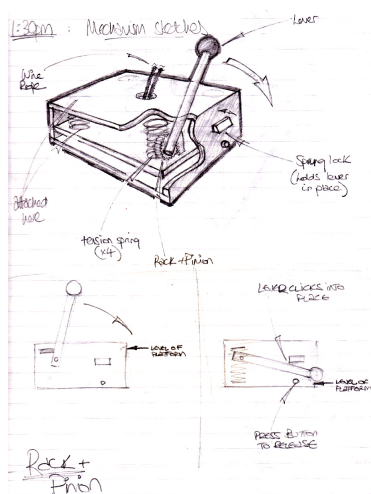 1:30pm : Mechanism sketches
Lever
Wire
Rope
Spring lock
(holds lever
in place)
attached
here
tension spring
(x4)
Rack + Pinion
LEVER CLICKS INTO
PLACE
LEVEL OF
PLATFORM
LEVEL OF
PLATFORM
PRESS BUTTON
TO RELEASE
Rack +
Pinion